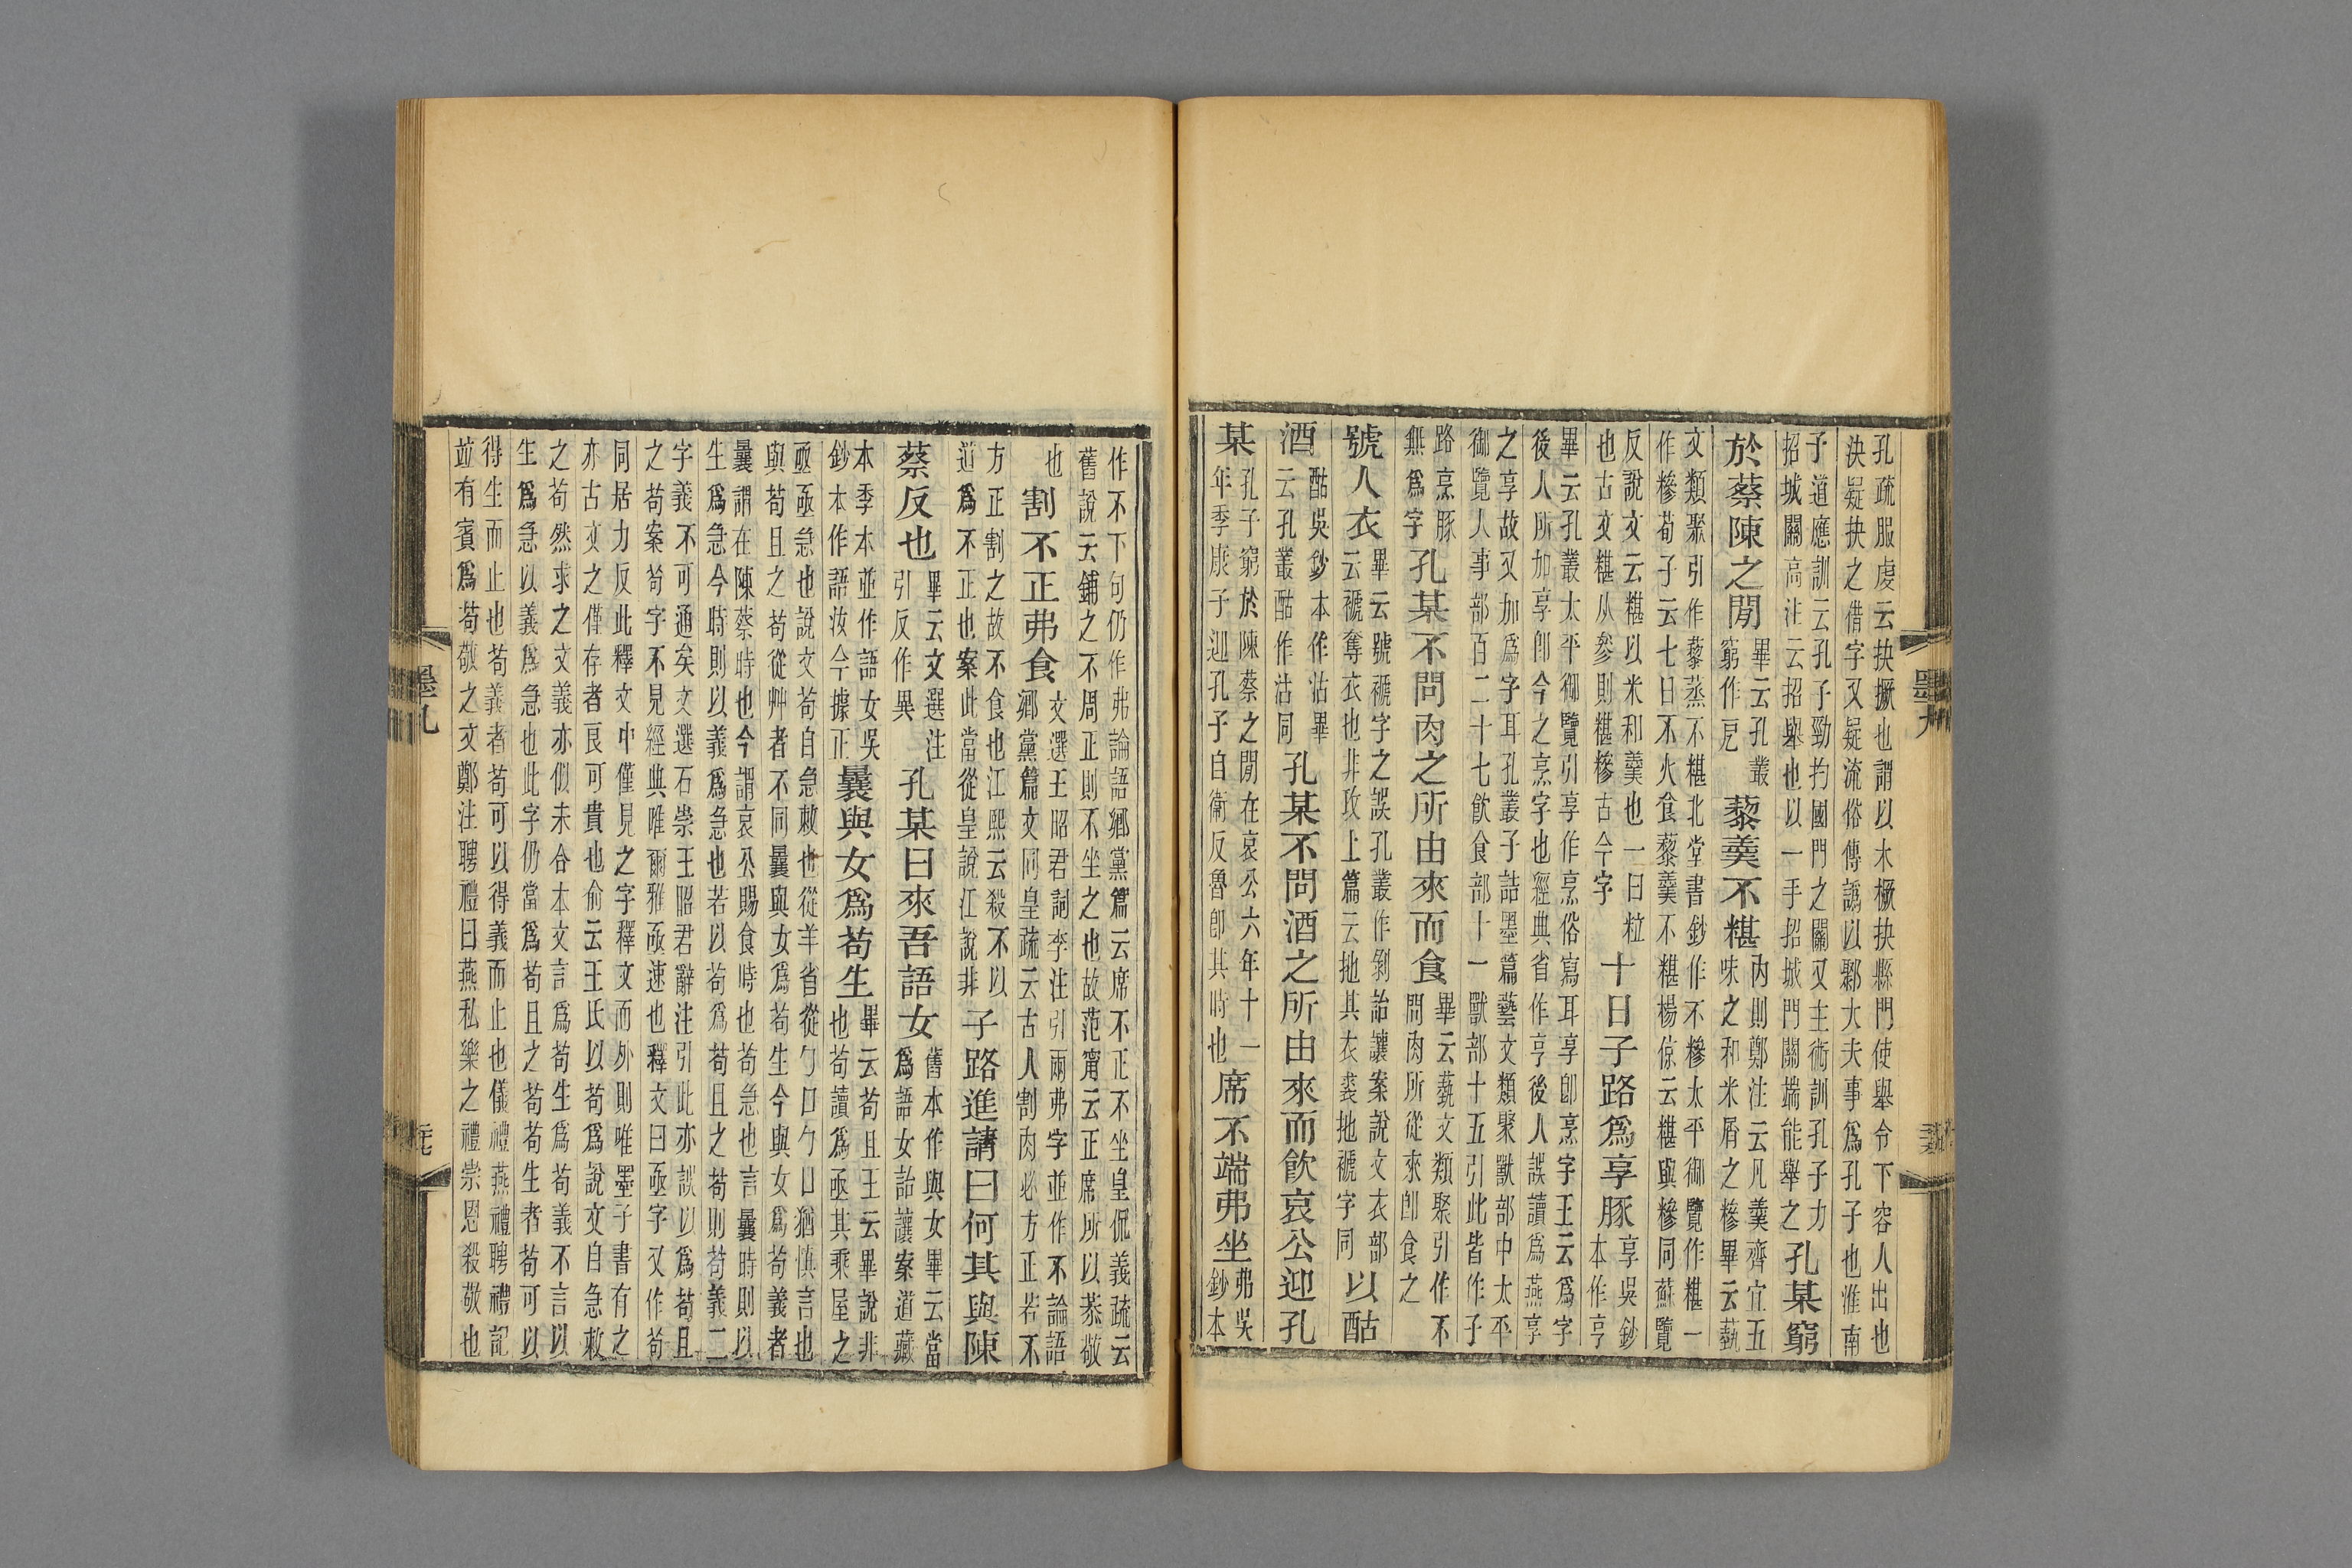 孔疏服虔云抉撅也謂以木橛抉縣門使舉令下容人出也
決疑抉之借字又疑流俗傳譌以鄹大夫事爲孔子也淮南
子道應訓云孔子勁扚國門之關又主術訓孔子力招城關高注云招舉也以一手招城門關端能舉之孔某窮
於蔡陳之閒畢云孔叢窮作戹藜羹不糂內則鄭注云凡羹齊宜五味之和米屑之糝畢云藝
文類聚引作藜蒸不糂北堂書鈔作不糝太平御覽作糂一
作糝荀子云七日不火食藜羹不糂楊倞云糂與糝同蘇覽
反說文云糂以米和羹也一曰粒也古文糂从參則糂糝古今字十日子路爲享豚享吳鈔本作亨
畢云孔叢太平御覽引享作烹俗寫耳享卽烹字王云爲字
後人所加享卽今之烹字也經典省作亨後人誤讀爲燕享
之享故又加爲字耳孔叢子詰墨篇藝文類聚獸部中太平
御覽人事部百二十七飲食部十一獸部十五引此皆作子
路烹豚無爲字孔某不問肉之所由來而食畢云藝文類聚引作不問肉所從來卽食之
號人衣畢云號褫字之誤孔叢作剝詒讓案說文衣部云褫奪衣也非攻上篇云扡其衣裘扡褫字同以酤
酒酤吳鈔本作沽畢云孔叢酤作沽同孔某不問酒之所由來而飲哀公迎孔
某孔子窮於陳蔡之閒在哀公六年十一年季康子迎孔子自衞反魯卽其時也席不端弗坐弗吳鈔本
作不下句仍作弗論語鄉黨篇云席不正不坐皇侃義疏云
舊說云鋪之不周正則不坐之也故范甯云正席所以恭敬
也割不正弗食文選王昭君詞李注引兩弗字並作不論語鄉黨篇文同皇疏云古人割肉必方正若不
方正割之故不食也江熙云殺不以道爲不正也案此當從皇說江說非子路進請曰何其與陳
蔡反也畢云文選注引反作異孔某曰來吾語女舊本作與女畢云當爲語女詒讓案道藏
本季本並作語女吳鈔本作語汝今據正曩與女爲苟生畢云苟且王云畢說非也苟讀爲亟其乘屋之
亟亟急也說文苟自急敕也從羊省從勹口勹口猶慎言也
與苟且之苟從艸者不同曩與女爲苟生今與女爲苟義者
曩謂在陳蔡時也今謂哀公賜食時也苟急也言曩時則以
生爲急今時則以義爲急也若以苟爲苟且之苟則苟義二
字義不可通矣文選石崇王昭君辭注引此亦誤以爲苟且
之苟案苟字不見經典唯爾雅亟速也釋文曰亟字又作苟
同居力反此釋文中僅見之字釋文而外則唯墨子書有之
亦古文之僅存者良可貴也俞云王氏以苟爲說文自急敕
之苟然求之文義亦似未合本文言爲苟生爲苟義不言以
生爲急以義爲急也此字仍當爲苟且之苟苟生者苟可以
得生而止也苟義者苟可以得義而止也儀禮燕禮聘禮記
竝有賓爲苟敬之文鄭注聘禮曰燕私樂之禮崇恩殺敬也
墨九